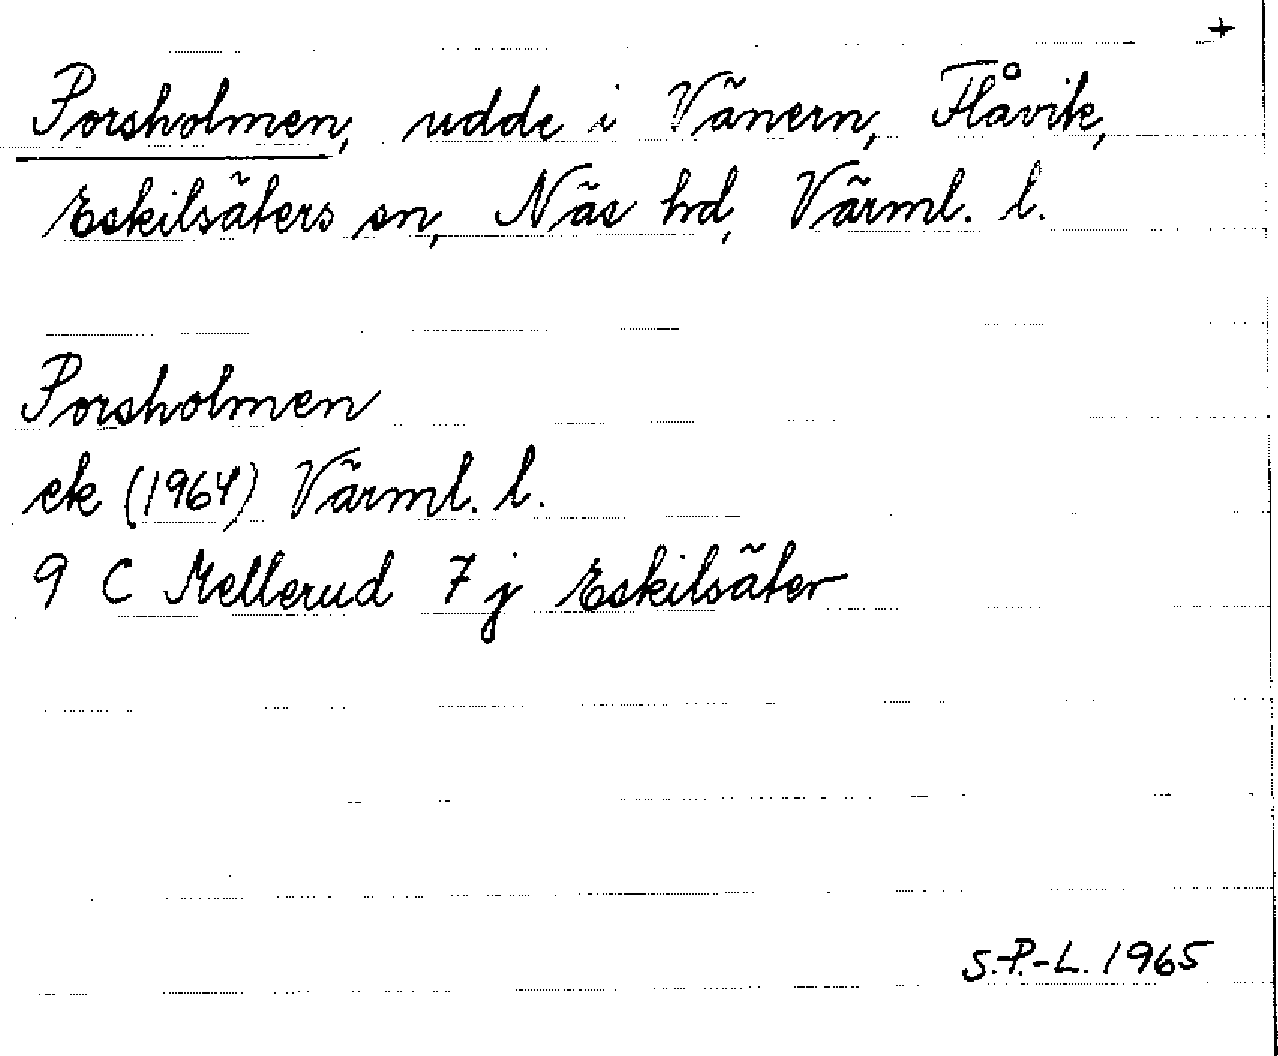 +
Porsholmen, udde i Vänern, Flåvik,
Eskilsäters sn, Näs hd, Värml. l.
Porsholmen
ek (1964) Värml. l.
9 C Mellerud 7 j Eskilsäter
S.-P.-L. 1965